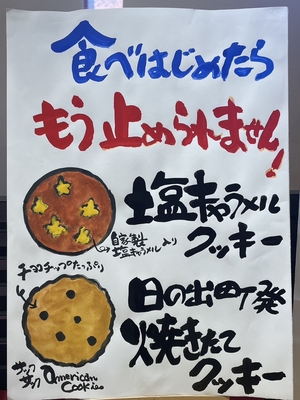 食べはじめたら
もう止められません!
塩キャラメル
クッキー
自家製生
塩キャラメル入り
チョコチップたっぷり
日の出町発
焼きたて
クッキー
サックサク
American
Cookies